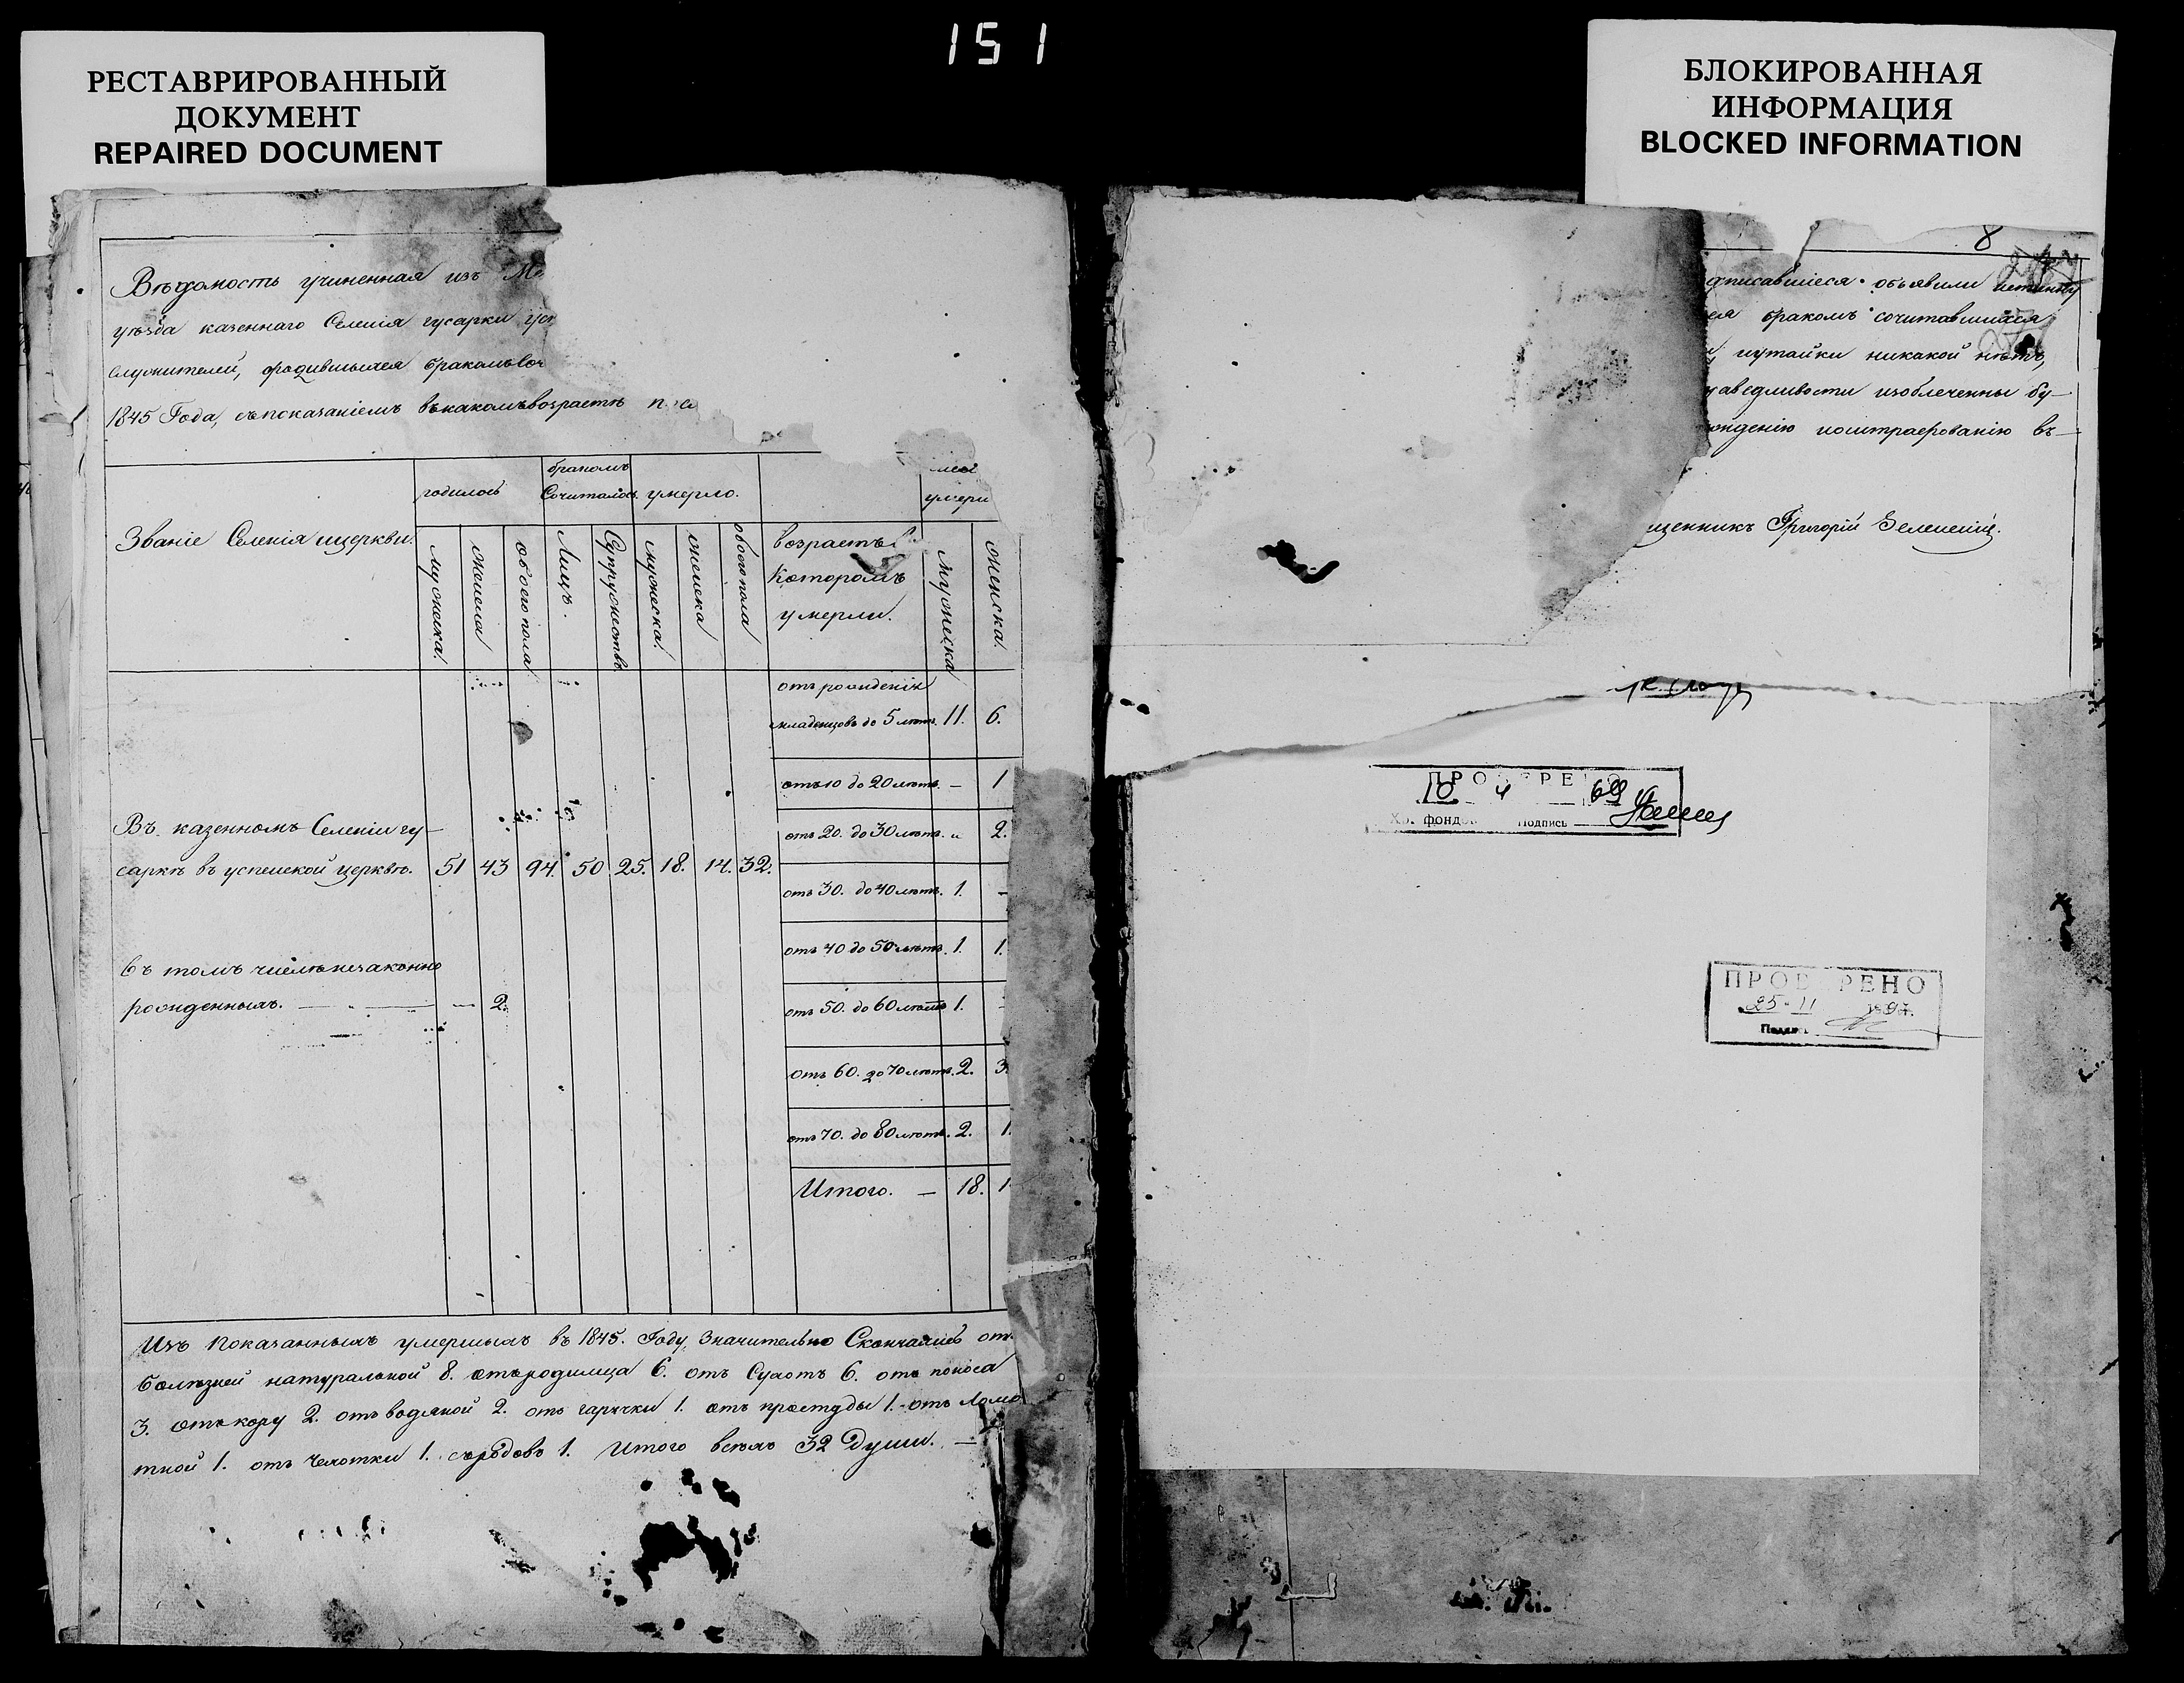 151
РЕСТАВРИРОВАННЫЙ
ДОКУМЕНТ
REPAIRED DOCUMENT
БЛОКИРОВАННАЯ
ИНФОРМАЦИЯ
BLOCKED INFORMATION
Вѣдомость учиненная изъ Ме
уѣзда казеннаго Селенія гусарки усп
служителей, родившихся бракомъ соч
1845 Года, съ показаніемъ въ какомъ возрастѣ
Званіе Селенія и церкви.
родилось
бракомъ
Сочиталось
умерло.
умерш
мужеска.
женска
обоего пола
Лицъ.
Супружествъ
мужеска.
женска
обоего пола
возрастъ в
которомъ
умерли.
мужеска
женска.
отъ рожденія
младенцовъ до 5 лѣтъ. 11. 6.
отъ 10 до 20 лѣтъ. — 1
отъ 20. до 30 лѣтъ. „ 2.
отъ 30. до 40 лѣтъ. 1. —
отъ 40 до 50 лѣтъ. 1. 1.
отъ 50. до 60 лѣтъ 1. -
отъ 60. до 70 лѣтъ. 2. 3.
отъ 70. до 80 лѣтъ. 2. 1.
Итого. — 18. 1
Въ казенномъ Селеніи гу-
саркѣ въ успенской церквѣ. 51 43 94. 50. 25. 18. 14. 32.
въ томъ числѣ незаконно
рожденныхъ. — — — 2.
Изъ показанныхъ умершихъ въ 1845. Году, значительно Скончались отъ
болѣзней натуральной 8. отъ родимца 6. отъ Сухотъ 6. отъ поноса
3. отъ кору 2. отъ водяной 2. отъ гарячки 1. отъ простуды 1. отъ Ломо
тной 1. отъ Чахотки 1. съ родовъ 1. Итого всѣхъ 32 Души. —
8
дписавшіеся объявили истинну
ся бракомъ сочитавшихся
и утайки никакой нѣтъ,
раведливости изобличенны бу-
ожденію и оштрафованію въ-
щенникъ Григорій Зеленскій.
ПРО ЕРЕНО
10 4 69
Хр. фонд Подпись
ПРОВЕРЕНО
25-11 1997.
Подпись